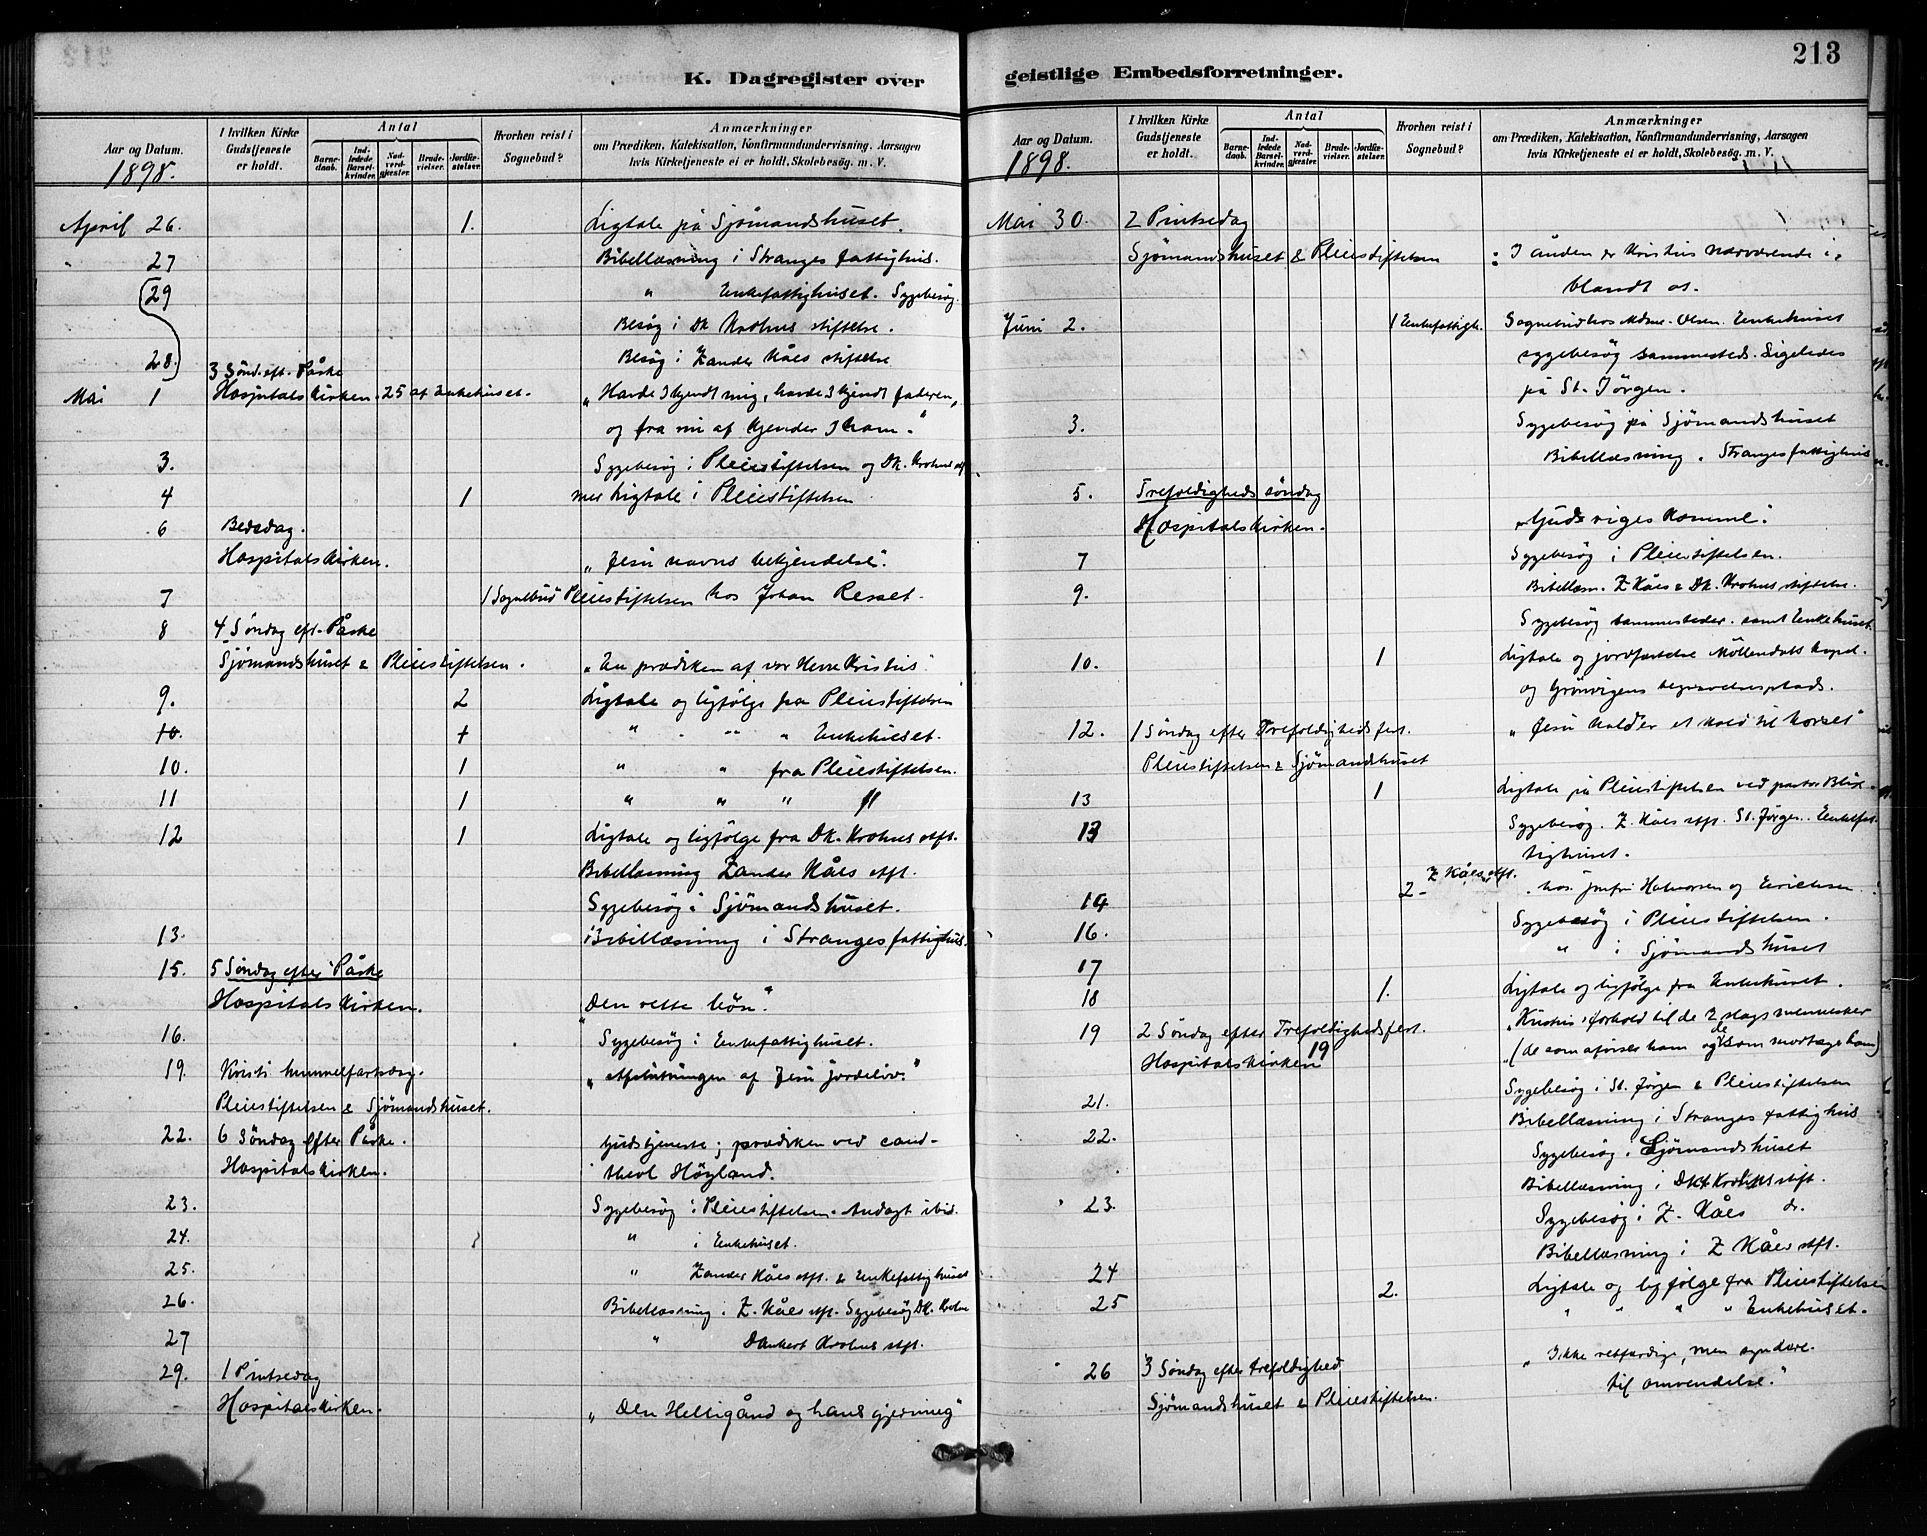 213
K. Dagregister over
geistlige Embedsforretninger.
Aar og Datum.
I hvilken Kirke Gudstjeneste er holdt.
Antal
Barnedaab.
Indledede Barselkvinder.
Nadverdgjester.
Brudevielser.
Jordfæstelser.
Hvorhen reist i Sognebud?
Anmærkninger
om Prædiken, Katekisation, Konfirmandundervisning, Aarsagen
hvis Kirketjeneste ei er holdt, Skolebesøg. m. V.
1898.
April 26. 1. Ligtale på Sjømandshuset.
" 27 Bibellæsning i Stranges fattighus.
29 " Enkefattighuset. Sygebesøg.
Besøg i Dk Krohns stiftelse.
28. Besøg i Zander Kåes stiftelse
3 Sønd. eft. Påske
Mai 1 Hospitalskirken. 25 af Enkehuset. "Havde I kjendt mig, havde I kjendt faderen,
og fra nu af kjender I ham."
3. Sygebesøg i Pleiestiftelsen og Dk. Krohns stf
4 1 Ligtale i Pleiestiftelsen
6 Bededag.
Hospitalskirken. "Jesu navns bekjendelse".
7 1 Sognebud Pleiestiftelsen hos Johan Resset.
8 4 Søndag eft. Påske
Sjømandshuset & Pleiestiftelsen. "En prædiken af vor Herre Kristus".
9. 2 Ligtale og ligfølge fra Pleiestiftelsen
10. 1 " " " Enkehuset.
10. 1 " " fra Pleiestiftelsen.
11 1 " " " "
12 1 Ligtale og ligfølge fra Dk. Krohns stft.
Bibellæsning Zander Kåes stft.
Sygebesøg i Sjømandshuset.
13. Bibellæsning i Stranges fattighus.
15. 5 Søndag efter Påske
Hospitalskirken. "Den rette bøn."
16. Sygebesøg i Enkefattighuset.
19. Kristi himmelfartsdag. "Afslutningen af Jesu jordeliv."
Pleiestiftelsen & Sjømandshuset.
22. 6 Søndag efter Påske. Gudstjeneste; prædiken ved cand.
Hospitalskirken. theol Høyland.
23. Sygebesøg i Pleiestiftelsen. Andagt ibid.
24. " i Enkehuset.
25. " Zander Kåes stft. & Enkefattighuset
26. Bibellæsning. Z. Kåes stft. Sygebesøg Dk. Krohn
27 " Dankert Krohns stft.
29. 1 Pintsedag
Hospitalskirken. "Den Helligånd og hans gjerning"
Aar og Datum.
I hvilken Kirke Gudstjeneste er holdt.
Antal
Barnedaab.
Indledede Barselkvinder.
Nadverdgjester.
Brudevielser.
Jordfæstelser.
Hvorhen reist i Sognebud?
Anmærkninger
om Prædiken, Katekisation, Konfirmandundervisning, Aarsagen
hvis Kirketjeneste ei er holdt, Skolebesøg. m. V.
1898.
Mai 30. 2 Pintsedag
Sjømandshuset & Pleiestiftelsen : I ånden er Kristus nærværende i
blandt os.
Juni 2. 1 Enkefattigh. Sognebud hos Mdme. Olsen. Enkehuset
sygebesøg sammesteds. Ligeledes
på St. Jørgen.
3. Sygebesøg på Sjømandshuset
Bibellæsning. Stranges fattighus
5. Trefoldigheds søndag
Hospitalskirken. "Guds riges komme".
7 Sygebesøg i Pleiestiftelsen.
9. Bibellæsn. Z Kåes & Dk. Krohns stiftelse.
Sygebesøg sammesteder. samt Enkehuset.
10. 1 Ligtale og jordfæstelse Møllendals kapel
og begravelsesplads.
12. 1 Søndag efter Trefoldighedsfest. "Jesu kalder
Pleiestiftelsen & Sjømandshuset
13 1 Ligtale på Pleiestiftelsen ved pastor
13 Sygebesøg. Z. Kåes stft. St. Jørgen. Enkefat
tighuset.
14 2 Z Kåes stft. hos Jomfru Halvorsen og Eriksen
16. Sygebesøg i Pleiestiftelsen.
17 " i Sjømandshuset
18 1. Ligtale og ligfølge fra Enkehuset.
19 2 Søndag efter Trefoldighedsfest. "Kristus' forhold til de 2 slags mennesker
Hospitalskirken 19 (de som afviser ham og de som modtage ham)
Sygebesøg i St. Jørgen & Pleiestiftelsen
21. Bibellæsning i Stranges fattighus
22. Sygebesøg i Sjømandshuset
Bibellæsning i Dkt Krohns stift.
23. Sygebesøg i Z. Kåes do.
Bibellæsning i Z Kåes stft.
24 Ligtale og ligfølge fra Pleiestiftelsen
25 2. " " " " Enkehuset.
26 3 Søndag efter trefoldighed "Ikke retfærdige, men syndere
Sjømandshuset & Pleiestiftelsen. til omvendelse."